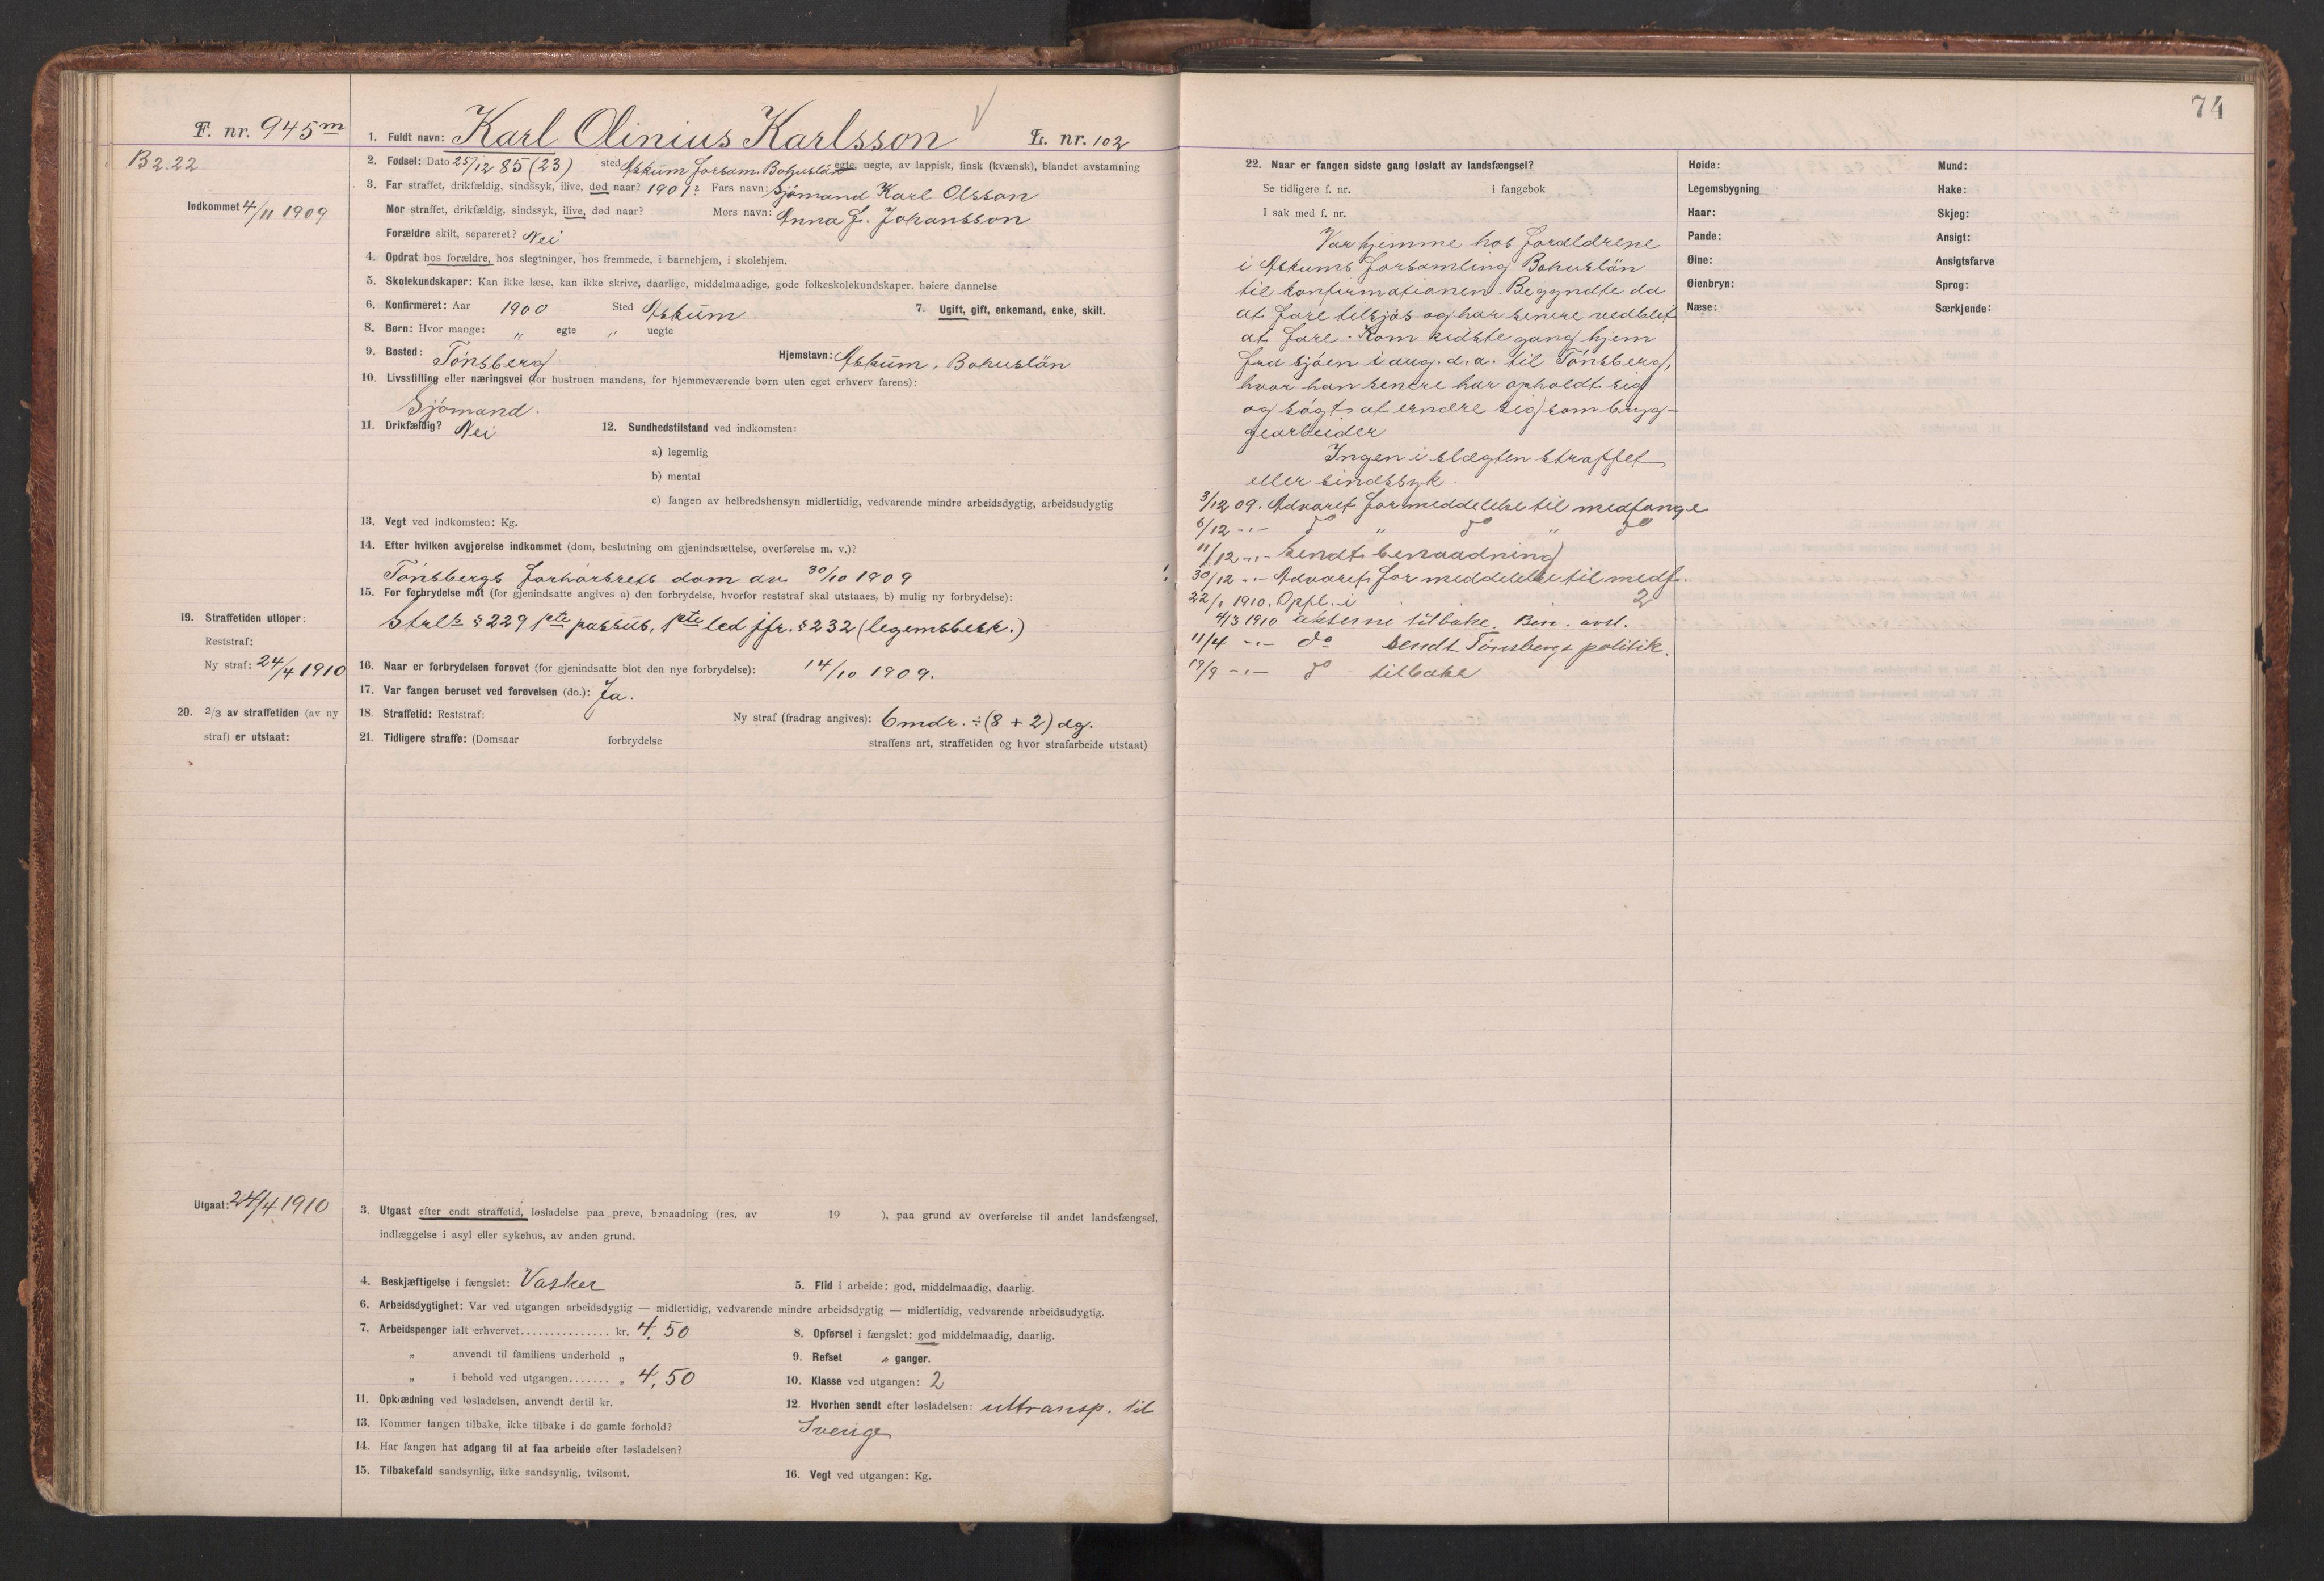 74
F. nr. 945m
B 2.22
Indkommet 4/11 1909
1. Fuldt navn: Karl Olinius Karlsson L. nr. 102
2. Fødsel: Dato 25/12 85 (23) sted Askum Forsam. Bohuslän egte, uegte, av lappisk, finsk (kvænsk), blandet avstamning
3. Far straffet, drikfældig, sindssyk, ilive, død naar? 1901? Fars navn: Sjömand Karl Olsson
Mor straffet, drikfældig, sindssyk, ilive, død naar? Mors navn: Anna L. Johansson
Forældre skilt, separeret? Nei
4. Opdrat hos forældre, hos slegtninger, hos fremmede, i barnehjem, i skolehjem.
5. Skolekundskaper: Kan ikke læse, kan ikke skrive, daarlige, middelmaadige, gode folkeskolekundskaper, høiere dannelse
6. Konfirmeret: Aar 1900 Sted Askum 7. Ugift, gift, enkemand, enke, skilt.
8. Børn: Hvor mange: " egte " uegte
9. Bosted: Tönsberg Hjemstavn: Askum, Bohuslän
10. Livsstilling eller næringsvei (for hustruen mandens, for hjemmeværende børn uten eget erhverv farens):
Sjömand.
11. Drikfældig? Nei 12. Sundhedstilstand ved indkomsten:
a) legemlig
b) mental
c) fangen av helbredshensyn midlertidig, vedvarende mindre arbeidsdygtig, arbeidsudygtig
13. Vegt ved indkomsten: Kg.
14. Efter hvilken avgjørelse indkommet (dom, beslutning om gjenindsættelse, overførelse m. v.)?
Tönsbergs forhörsrets dom av 30/10 1909
15. For forbrydelse mot (for gjenindsatte angives a) den forbrydelse, hvorfor reststraf skal utstaaes, b) mulig ny forbrydelse):
Strl's § 229 1pte passus, 1pte led jfr. § 232 (legemsbesk.)
19. Straffetiden utløper:
Reststraf:
Ny straf: 24/4 1910
16. Naar er forbrydelsen forøvet (for gjenindsatte blot den nye forbrydelse): 14/10 1909.
17. Var fangen beruset ved forøvelsen (do.): Ja.
20. 2/3 av straffetiden (av ny
straf) er utstaat:
18. Straffetid: Reststraf: Ny straf (fradrag angives): 6 mdr. ÷ (8 + 2) dg.
21. Tidligere straffe: (Domsaar forbrydelse straffens art, straffetiden og hvor strafarbeide utstaat)
Utgaat: 24/4 1910
3. Utgaat efter endt straffetid, løsladelse paa prøve, benaadning (res. av 19 ), paa grund av overførelse til andet landsfængsel,
indlæggelse i asyl eller sykehus, av anden grund.
4. Beskjæftigelse i fængslet: Vasker 5. Flid i arbeide: god, middelmaadig, daarlig.
6. Arbeidsdygtighet: Var ved utgangen arbeidsdygtig — midlertidig, vedvarende mindre arbeidsdygtig — midlertidig, vedvarende arbeidsudygtig.
7. Arbeidspenger ialt erhvervet............... kr. 4,50 8. Opførsel i fængslet: god middelmaadig, daarlig.
" anvendt til familiens underhold " 9. Refset " ganger.
" i behold ved utgangen....... " 4,50 10. Klasse ved utgangen: 2
11. Opklædning ved løsladelsen, anvendt dertil kr. 12. Hvorhen sendt efter løsladelsen: uttransp. til
13. Kommer fangen tilbake, ikke tilbake i de gamle forhold? Sverige
14. Har fangen hat adgang til at faa arbeide efter løsladelsen?
15. Tilbakefald sandsynlig, ikke sandsynlig, tvilsomt. 16. Vegt ved utgangen: Kg.
22. Naar er fangen sidste gang løslatt av landsfængsel?
Se tidligere f. nr. i fangebok
I sak med f. nr.
Var hjemme hos foræeldrene
i Askums forsamling Bohuslän
til konfirmationen. Begyndte da
at fare tilsjös og har senere vedblit
at fare. Kom sidste gang hjem
fra sjöen i aug. d.a. til Tönsberg,
hvor han senere har opholdt sig
og sögt at ernære sig som bryg-
gearbeider
Ingen i slægten straffet
eller sindssyk.
3/12 09. Advaret for meddelelse til medfange
6/12 -"- do " do " do
11/12 -"- Sendt benaadning
30/12 -"- Advaret for meddelelse til medf.
22/1 1910. Oppl. i 2
4/3 1910 akterne tilbake. Ben. avsl.
11/4 -"- do sendt Tönsbergs politik.
19/9 -"- do tilbake
Høide:
Legemsbygning
Haar:
Pande:
Øine:
Øienbryn:
Næse:
Mund:
Hake:
Skjeg:
Ansigt:
Ansigtsfarve
Sprog:
Særkjende: